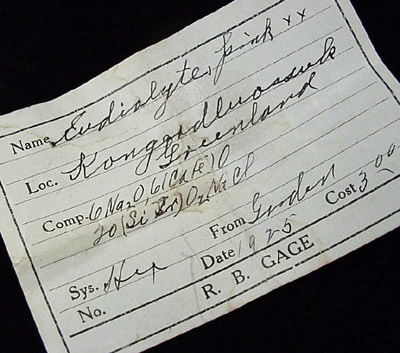 Name Eudialyte, pink xx
Loc. Kangerdluarssuk
Greenland
Comp. 6 Na2O 6(CaFe)O
20(Si Zr)O2 NaCl
Sys. Hex From Cost 3.00
No. Date 1925
R. B. GAGE